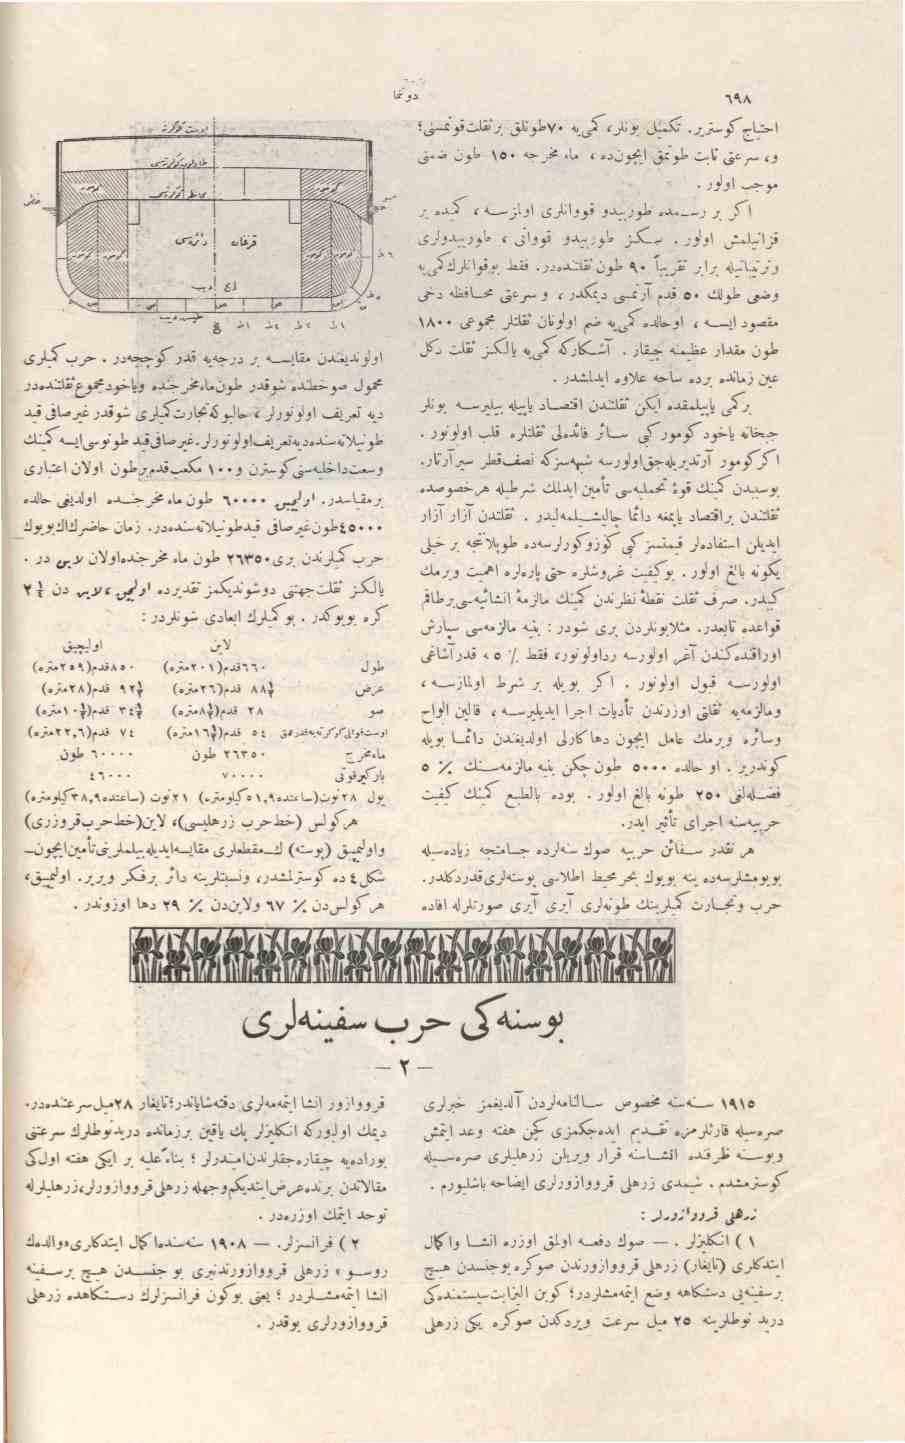 ٦٩٨
دوننما
احتیاج كوستریر. تكمیل بونلر، كمی‌یه ٧٠طونلق بر ثقلت قوتمسنی؟
و، سرعتی ثابت طوتمق ایچون‌ده ، ماء مخرجه ١٥٠ طون ضمنی
موجب اولور .
اكر بر رسمده طورپیدو قووانلری اولمازسه ، كمیده یر
قزانیلمش اولور . سكز طورپیدو قووانی ، طورپیدولری
وترتیباتیله برابر تقریباً ٩٠ طون ثقلتنده‌در. فقط بوقوانلرك كمی‌یه
وضعی طولك ٥٠ قدم آرتمسی دیمكدر ، و سرعتی محافظه دخی
مقصود ایسه ، اوحالده كمی‌یه ضم اولونان ثقلتلر مجموعی ١٨٠٠
طون مقدار عظیمنه چیقار . آشكاركه كمی‌یه یالكز ثقلت دكل
عین زمانده برده ساحه علاوه ایدلمشدر .
بركمی یاپیلمقده ایكن ثقلتدن اقتصاد یاپیله بیلیرسه بونلر
جبخانه یاخود كومور كبی سائر فائده‌لی ثقلتلره قلب اولونور .
اكركومور آرتدیریله‌جق‌اولورسه شبهه‌سزكه نصف‌قطر سیرآرتار.
بوسیدن كمینك قوۀ تحملیه‌سی تأمین ایدلمك شرطیله هرخصوصده
ثقلتندن براقتصاد یاپمغه دائما چالیشیلمه‌لیدر . ثقلتدن آزار آزار
ایدیلن استفاده‌لر قیمتسز كبی كوزوكورلرسه‌ده طوپلانجه بر خیلی
یكونه بالغ اولور . بوكیفیت غروشلره حتی پاره‌لره اهمیت ویرمك
كبیدر. صرف ثقلت نقطۀ نظرندن كمینك مالزمۀ انشائیه‌سی برطاقم
قواعده تابعدر. مثلا بونلردن بری شودر : بنیه مالزمه‌سی سپارش
اوراقنده‌كندن آغر اولورسه رداولونور، فقط ٪ ٥ ، قدر آشاغی
اولورسه قبول اولونور . اكر بویله بر شرط اولمازسه ،
ومالزمه‌یه ثقلتی اوزرندن تأدیات اجرا ایدیلیرسه ، قالین الواح
وسائره ویرمك عامل ایچون دها كارلی اولدیغندن دائما بویله
كوندریر . او حالده ٥٠٠٠ طون چكن بنیه مالزمه‌سنك ٪ ٥
فضله‌لغی ٢٥٠ طونه بالغ اولور . بوده بالطبع كمینك كیفیت
حربیه‌سنه اجرای تأثیر ایدر.
هر نقدر سفائن حربیه صوك سنه‌لرده جسامتجه زیاده‌سیله
بویومشلرسه‌ده ینه بویوك بحر محیط اطلاسی پوسته‌لری قدر دكلدر.
حرب وتجارت كمیلرینك طونه‌لری آیری آیری صورتلرله افاده
قزغان دائره‌سی
اولوندیغندن مقایسه بر درجه‌یه قدر كوچجه‌در . حرب كمیلری
محمول صو خطنده شوقدر طون‌ماءمخرجنده ویاخودمجموع ثقلتنده‌در
دیه تعریف اولونورلر ، حالبوكه‌تجارت كمیلری شوقدر غیرصافی قید
طونیلاتوسنده‌دیه‌تعریف‌اولونورلر.غیرصافی قید طونوسی ایسه كمینك
وسعت‌داخلیه‌سنی كوسترن و ١٠٠ مكعب قدم برطون اولان اعتباری
برمقیاسدر. اولیمپیق ٦٠٠٠٠ طون ماء مخرجنده اولدیغی حالده
٤٥٠٠٠طون غیرصافی قیدطونیلاتوسنده‌در. زمان حاضرك اك‌بویوك
حرب كمیلرندن بری٢٦٣٥٠ طون ماء مخرجنده‌اولان لاین در .
یالكز ثقلت جهتنی دوشوندیكمز تقدیرده اولیمپیق، لاین دن ٢¼
كره بویوكدر . بو كمیلرك ابعادی شونلردر :
لاین اولیمپیق
طول ٦٦٠قدم(٢٠١متره) ٨٥٠قدم(٢٥٩متره)
عرض ٨٨½ قدم(٢٦متره) ٩٢½ قدم(٢٨متره)
صو ٢٨ قدم(٨½متره) ٣٤½ قدم(١٠½متره)
اوست‌قوایی‌كوكرته‌یه‌قدرعمق ٥٤ قدم(١٦½متره) ٧٤ قدم(٢٢,٦متره)
ماءمخرج ٢٦٣٥٠ طون ٦٠٠٠٠ طون
باركیرقوتی ٧٠٠٠٠ ٤٦٠٠٠
یول ٢٨نوت(ساعتده٥١,٩كیلومتره) ٢١نوت (ساعتده٣٨,٩كیلومتره)
هركولس (خط حرب زرهلیسی)، لاین(خط‌حرب‌قروزری)
واولیمپیق (پوسته) ك‌مقطعلری مقایسه‌ایدیله‌بیلملرینی‌تأمین‌ایچون
شكل ٤ ده كوسترلمشدر، ونسبتلرینه دائر برفكر ویریر. اولیمپیق،
هركولس‌دن ٪ ٦٧ ولاین‌دن ٪ ٢٩ دها اوزوندر .
بوسنه‌كی حرب سفینه‌لری
— ٢ —
١٩١٥ سنه‌سنه مخصوص سالنامه‌لردن آلدیغمز خبرلری
صره‌سیله قارئلرمزه تقدیم ایده‌جكمزی كچن هفته وعد ایتمش
وبوسنه ظرفنده انشاسنه قرار ویریلن زرهلیلری صره‌سیله
كوسترمشدم . شیمدی زرهلی قرووازورلری ایضاحه باشلیورم .
زرهلی قرووازورلر :
١ ) انكلیزلر . — صوك دفعه اولمق اوزره انشا واكمال
ایتدكلری (تایغار) زرهلی قرووازورندن صوكره بوجنسدن هیچ
برسفینه‌یی دستكاهه وضع ایتمه‌مشلردر؛ كوین الیزابت‌سیستمنده‌كی
درید نوطلرینه ٢٥ میل سرعت ویردكدن صوكره یكی زرهلی
قرووازور انشا ایتمه‌مه‌لری دقته‌شایاندر؛تایغار ٢٨میل‌سرعتنده‌در.
دیمك اولیوركه انكلیزلر پك یاقین برزمانده دریدنوطلرك سرعتنی
بوراده‌یه چیقاره‌جقلرندن‌امیدرلر ؛ بناءً علیه بر ایكی هفته اول‌كی
مقالاتدن برنده‌عرض‌ایتدیكم‌وجهله زرهلی‌قرووازورلر،زرهلیلرله
توحد ایتمك اوزره‌در .
٢ ) فرانسزلر. — ١٩٠٨ سنه‌سنده‌اكمال ایتدكلری«والده‌ك
روسو » زرهلی قرووازورندنبری بو جنسدن هیچ برسفینه
انشا ایتمه‌مشلردر ؛ یعنی بوكون فرانسزلرك دستكاهده زرهلی
قرووازورلری یوقدر .